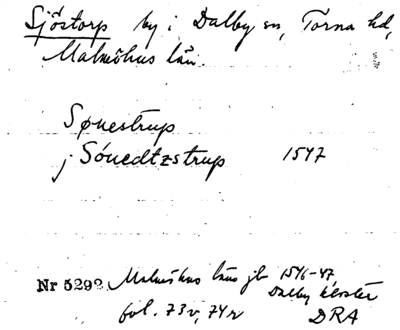 Sjöstorp by i Dalby sn, Torna hd,
Malmöhus län.
Sønestrup
j Sónedtzstrup 1547
Nr 5292 Malmöhus läns jb 1546-47
Dalby kloster
fol. 73v, 74r DRA